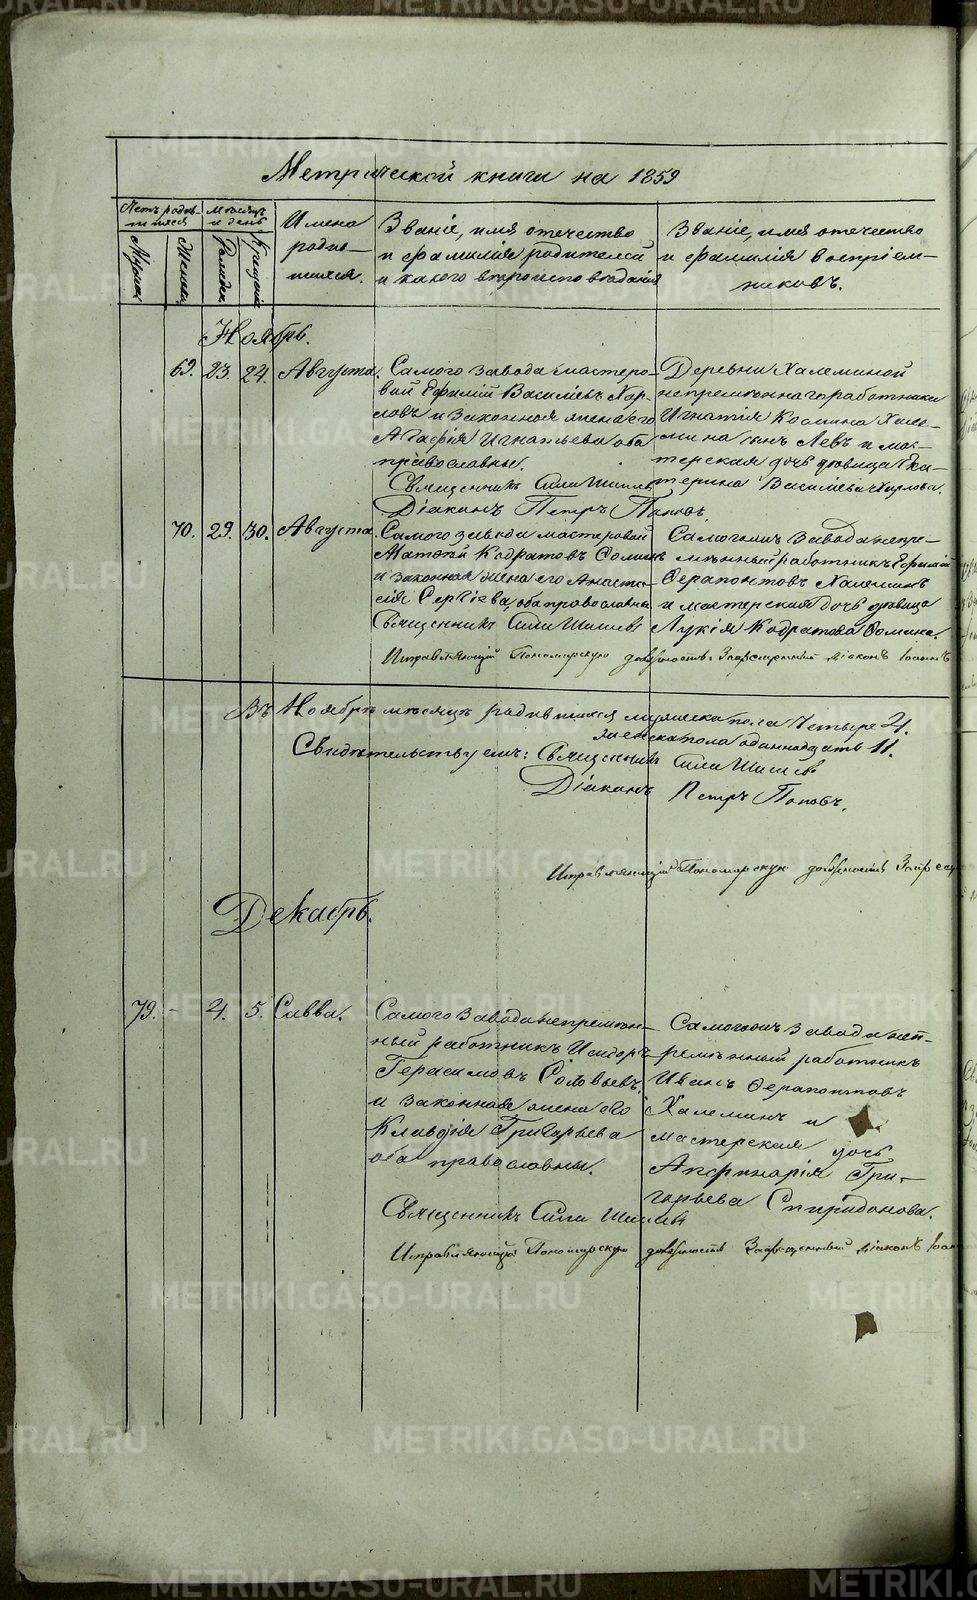 Метрической книги на 1859
Счетъ родив-
шихся
Мѣсяцъ
и день
Имена
родив-
шихся.
Званіе, имя отечество
и фамилія родителей
и какого вѣроисповѣданія
Званіе, имя отечество
и фамилія воспріем-
никовъ.
Мужеска
Женска
Рожден
Крещені
Ноябрь.
69. 23. 24. Августа.
Самого завода мастеро-
вой Ефимій Васильевъ Хар-
ловъ и законная жена его
Агафія Игнатьева оба
православны.
Деревни Халеминой
непремѣннаго работника
Игнатія Козмина Хале-
мина сынъ Левъ и мас-
терская дочь дѣвица Ека-
терина Васильева Харлова.
Священникъ Сила Шишев
Діаконъ Петръ Поповъ.
70. 29. 30. Августа.
Самого завода мастеровой
Матѳей Кодратовъ Ѳоминъ
и законная жена его Анаста-
сія Сергіева, оба православны
Самогожъ завода непре-
мѣнный работникъ Ефимій
Ѳерапонтовъ Халеминъ
и мастерская дочь дѣвица
Лукія Кодратова Ѳомина.
Священникъ Сила Шишев
Исправляющій Пономарскую должность Запрещенный діаконъ Іоаннъ
Въ Ноябрѣ мѣсяцѣ родившихся мужеска пола четыре 4.
женска пола одиннадцать 11.
Свидѣтельствуемъ: Священникъ Сила Шишев
Діаконъ Петръ Поповъ.
Исправляющій Пономарскую должность Запрещ
Декабрь.
79. - 4. 5. Савва.
Самого завода непремѣн-
ный работникъ Исидоръ
Герасимовъ Соловьевъ
и законная жена его
Клавдія Григорьева
оба православны.
Самогожъ завода неп-
ремѣнный работникъ
Иванъ Ѳерапонтовъ
Халеминъ и
мастерская дочь
Апѳинарія Гри-
горьева Спиридонова.
Священникъ Сила Шишев
Исправляющій Пономарскую должность Запрещенный діаконъ Іоан
METRIKI.GASO-URAL.RU